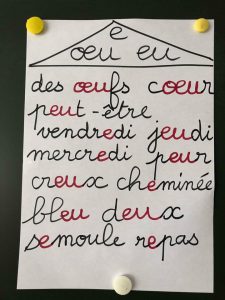 e
œu eu
des œufs cœur
peut-être
vendredi jeudi
mercredi peur
creux cheminée
bleu deux
semoule repas